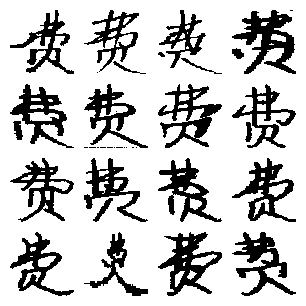 费费费费
费费费费
费费费费
费费费费